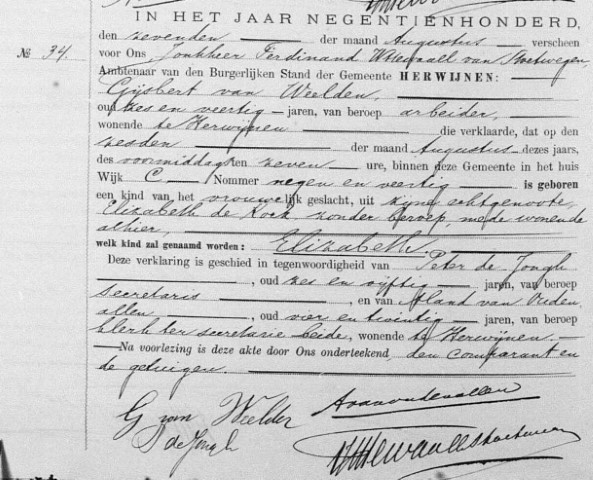 IN HET JAAR NEGENTIENHONDERD,
den zevenden der maand Augustus verscheen
№ 34.
voor Ons Jonkheer Ferdinand Uttewaall van Stoetwegen,
Ambtenaar van den Burgerlijken Stand der Gemeente HERWIJNEN:
Gijsbert van Weelden,
oud zes en veertig jaren, van beroep arbeider,
wonende te Herwijnen die verklaarde, dat op den
zesden der maand Augustus dezes jaars,
des voormiddags ten zeven ure, binnen deze Gemeente in het huis
Wijk C Nommer negen en veertig is geboren
een kind van het vrouwelijk geslacht, uit zijne echtgenoote,
Elizabeth de Kock zonder beroep, mede wonende
alhier,
welk kind zal genaamd worden: Elizabeth
Deze verklaring is geschied in tegenwoordigheid van Peter de Jongh
, oud zes en vijftig jaren, van beroep
secretaris , en van Aland van Ouden
allen , oud vier en twintig jaren, van beroep
klerk ter secretarie beide, wonende te Herwijnen.
Na voorlezing is deze akte door Ons onderteekend, den comparant en
de getuigen.
G van Weelden
P de Jongh